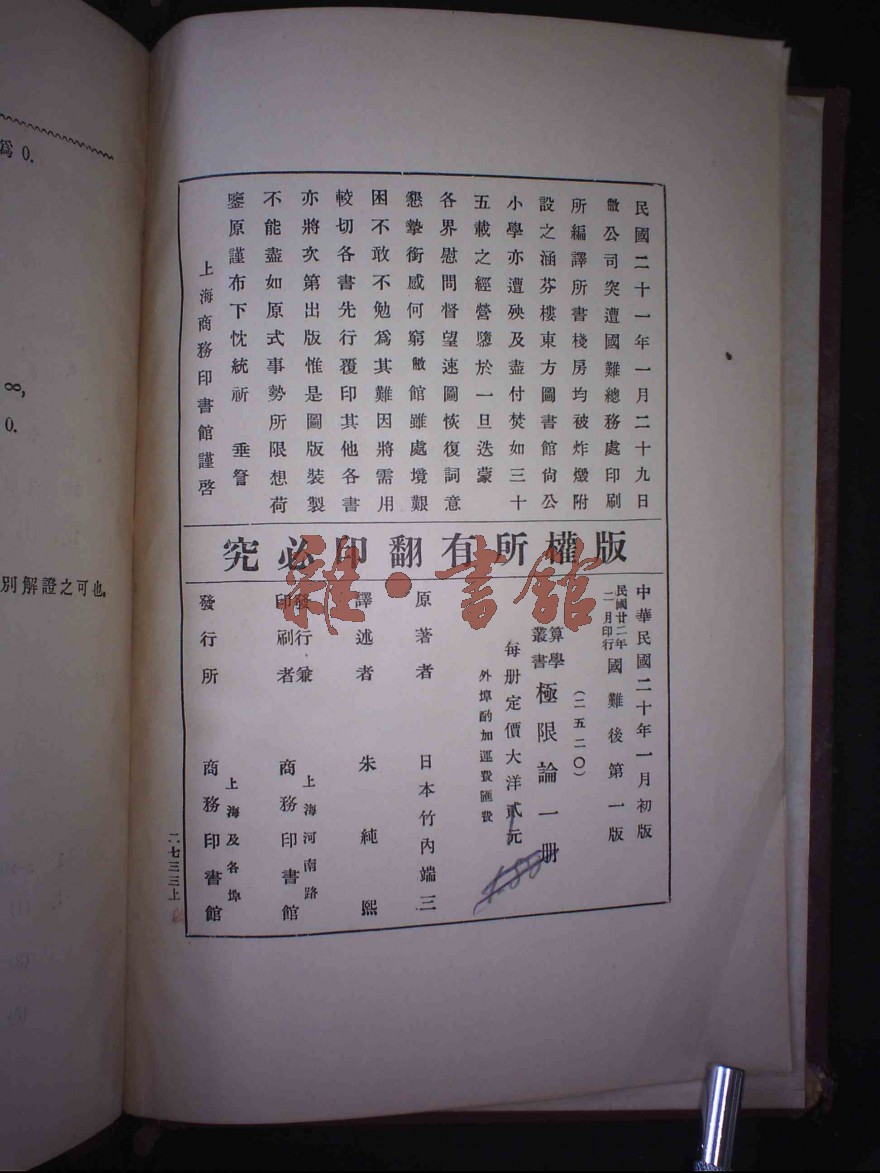 民國二十一年一月二十九日
敝公司突遭國難總務處印刷
所編譯所書棧房均被炸燬附
設之涵芬樓東方圖書館尙公
小學亦遭殃及盡付焚如三十
五載之經營隳於一旦迭蒙
各界慰問督望速圖恢復詞意
懇摯銜感何窮敝館雖處境艱
困不敢不勉爲其難因將需用
較切各書先行覆印其他各書
亦將次第出版惟是圖版裝製
不能盡如原式事勢所限想荷
鑒原謹布下忱統祈 垂詧
上海商務印書館謹啓
版權所有翻印必究
中華民國二十年一月初版
民國廿二年二月印行 國難後第一版
(二五二〇)
算學叢書 極限論一册
每册定價大洋貳元
外埠酌加運費匯費
原著者 日本竹內端三
譯述者 朱純熙
發行兼印刷者 上海河南路 商務印書館
發行所 上海及各埠 商務印書館
二七三三上
雜·書館
爲 0.
∞,
0.
別解證之可也.